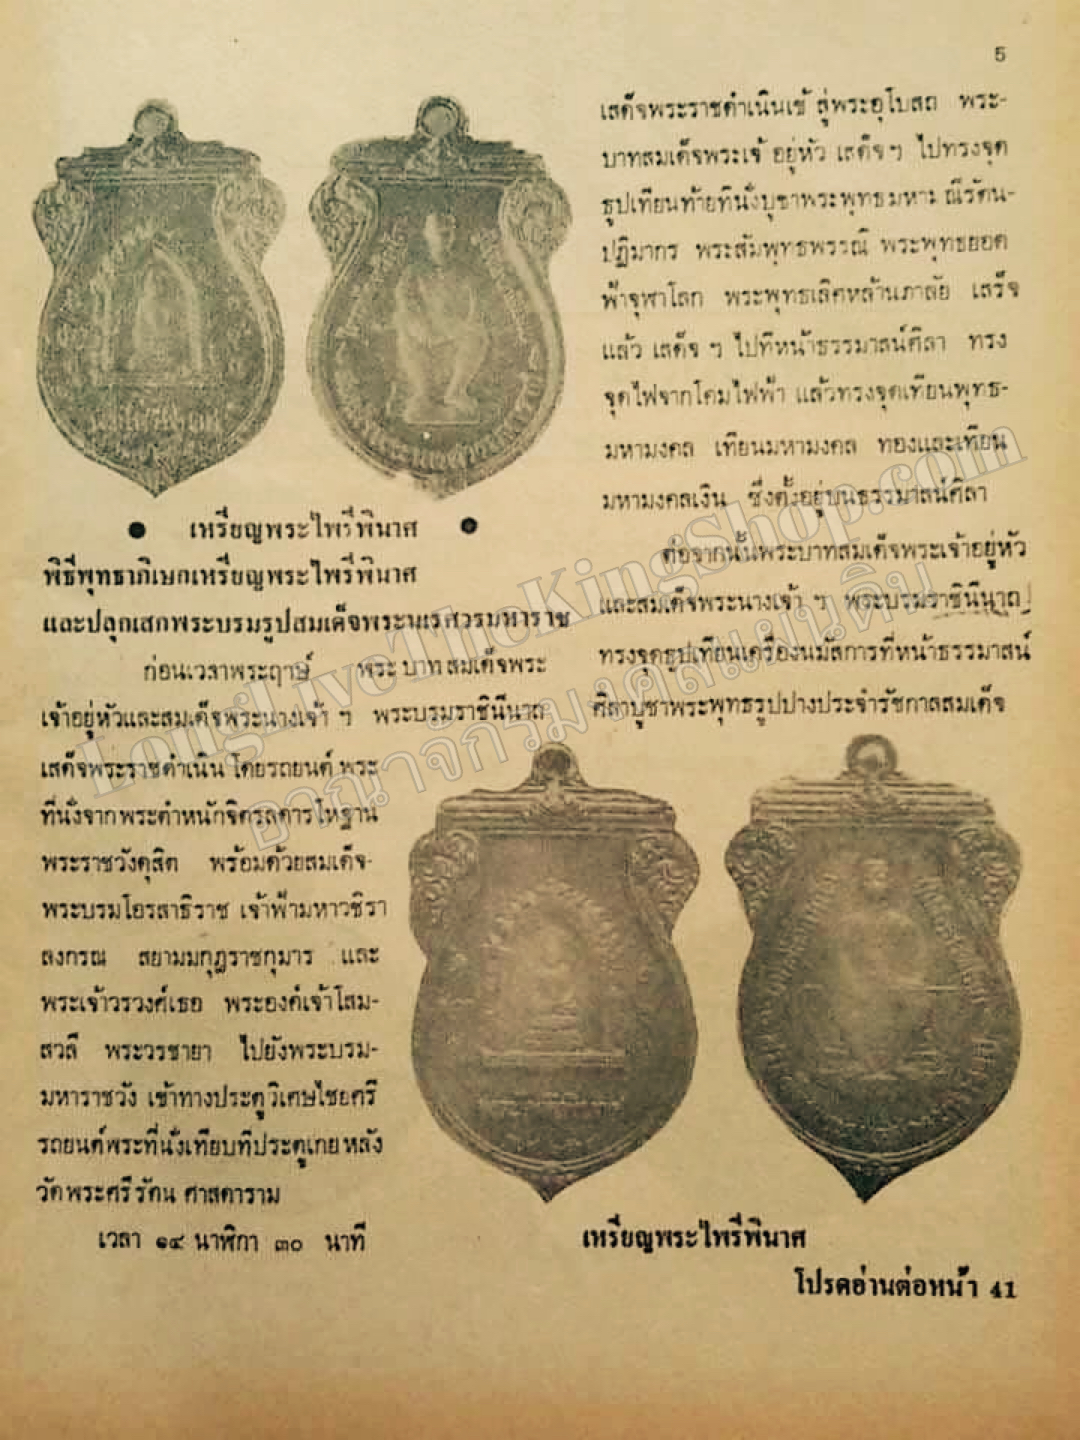 5
● เหรียญพระไพรีพินาศ ●
พิธีพุทธาภิเษกเหรียญพระไพรีพินาศ
และปลุกเสกพระบรมรูปสมเด็จพระนเรศวรมหาราช
ก่อนเวลาพระฤาษ์ พระบาทสมเด็จพระ
เจ้าอยู่หัวและสมเด็จพระนางเจ้า ฯ พระบรมราชินีนาถ
เสด็จพระราชดำเนินโดยรถยนต์พระ
ที่นั่งจากพระตำหนักจิตรลดารโหฐาน
พระราชวังดุสิต พร้อมด้วยสมเด็จ-
พระบรมโอรสาธิราช เจ้าฟ้ามหาวชิรา
ลงกรณ สยามมกุฎราชกุมาร และ
พระเจ้าวรวงศ์เธอ พระองค์เจ้าโสม-
สวลี พระวรชายา ไปยังพระบรม-
มหาราชวัง เข้าทางประตูวิเศษไชยศรี
รถยนต์พระที่นั่งเทียบที่ประตูเกยหลัง
วัดพระศรีรัตนศาสดาราม
เวลา ๑๔ นาฬิกา ๓๐ นาที
เสด็จพระราชดำเนินเข้าสู่พระอุโบสถ พระ-
บาทสมเด็จพระเจ้าอยู่หัว เสด็จฯ ไปทรงจุด
ธูปเทียนท้ายที่นั่งบูชาพระพุทธมหามณีรัตน-
ปฏิมากร พระสัมพุทธพรรณี พระพุทธยอด
ฟ้าจุฬาโลก พระพุทธเลิศหล้านภาลัย เสร็จ
แล้ว เสด็จ ฯ ไปที่หน้าธรรมาสน์ศิลา ทรง
จุดไฟจากโคมไฟฟ้า แล้วทรงจุดเทียนพุทธ-
มหามงคล เทียนมหามงคล ทองและเทียน
มหามงคลเงิน ซึ่งตั้งอยู่บนธรรมาสน์ศิลา
ต่อจากนั้นพระบาทสมเด็จพระเจ้าอยู่หัว
และสมเด็จพระนางเจ้า ฯ พระบรมราชินีนาถ
ทรงจุดธูปเทียนเครื่องนมัสการที่หน้าธรรมาสน์
ศิลาบูชาพระพุทธรูปปางประจำรัชกาลสมเด็จ
เหรียญพระไพรีพินาศ
โปรดอ่านต่อหน้า 41
LongLiveTheKingShop.com
อาณาจักรมงคลแผ่นดิน